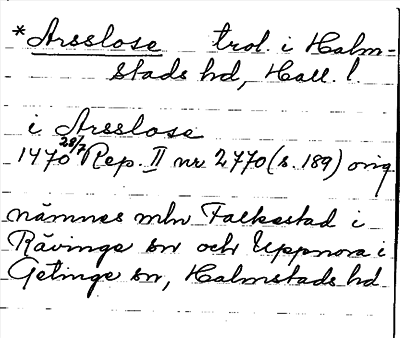 *Arsslose trol. i Halm-
stads hd, Hall. l.
i Arsslose
1470 28/7 Rep. II nr 2770 (s. 189) orig
nämnes mln Falkestad i
Rävinge sn och Uppnora i
Getinge sn, Halmstads hd